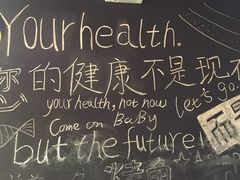 Your health.
您的健康不是现
your health, not now
Let's go.
Come on BaBy
but the future!